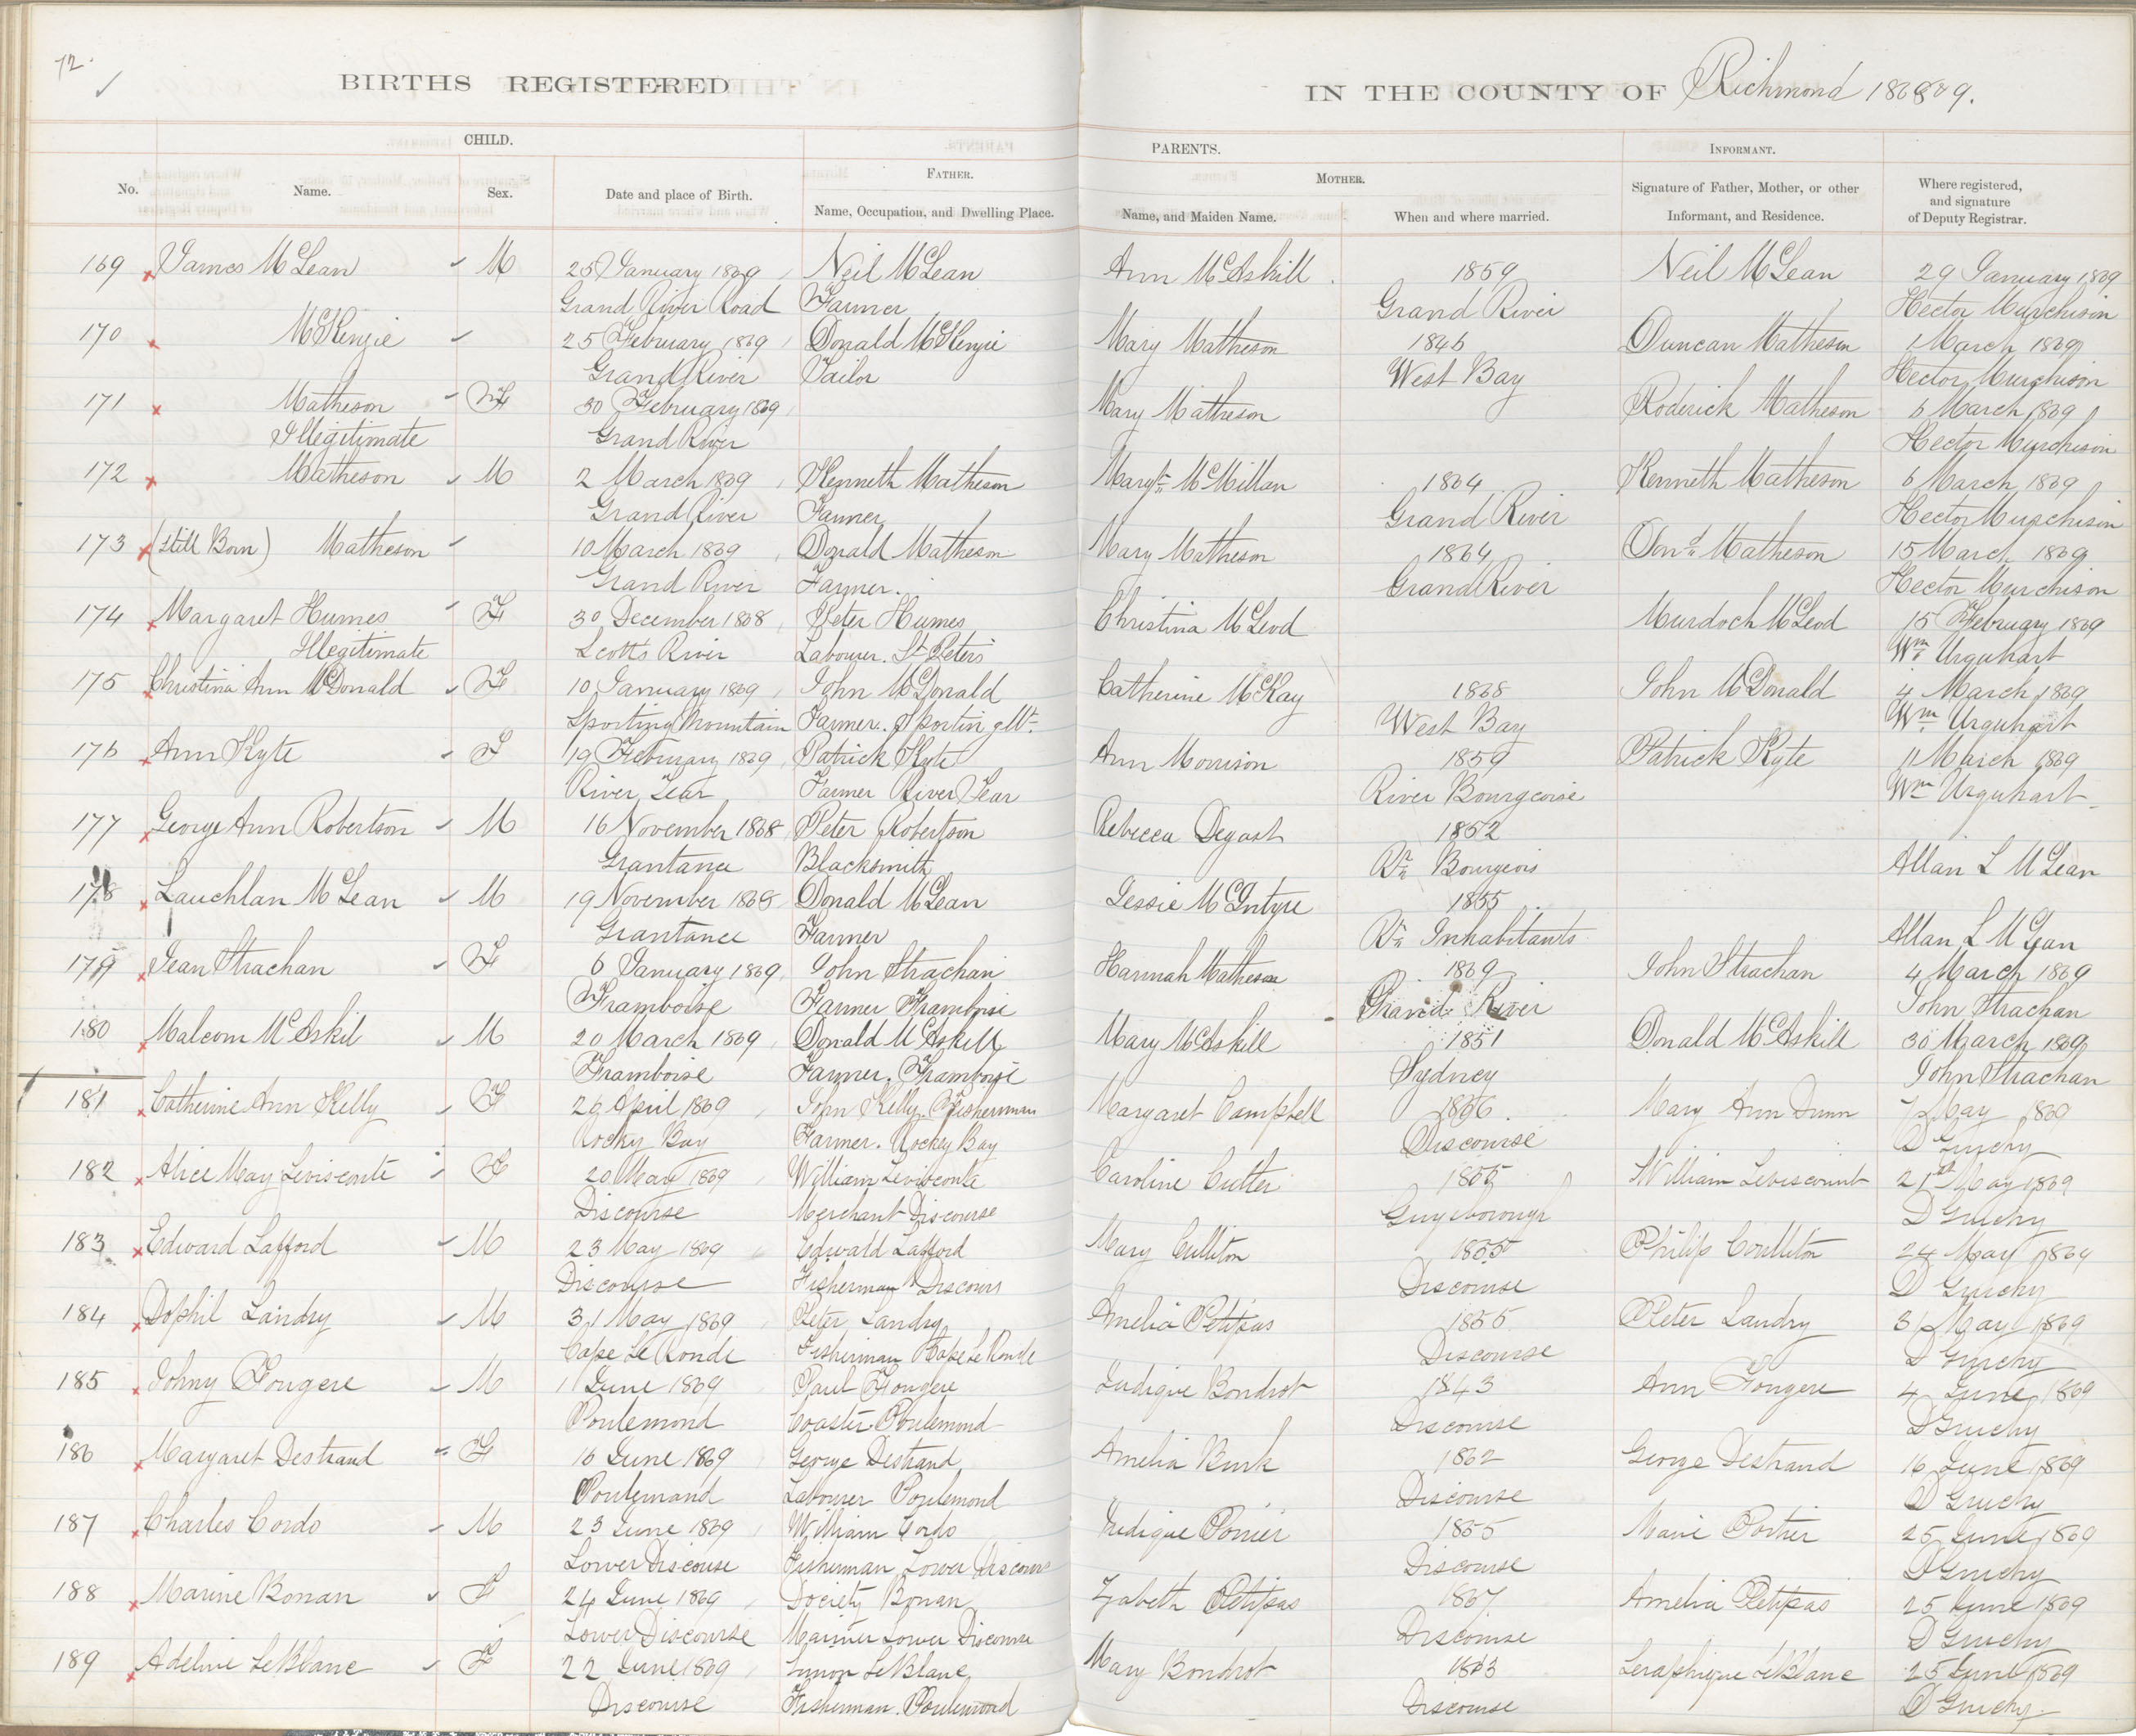 72.
BIRTHS REGISTERED IN THE COUNTY OF Richmond 1869.
CHILD. PARENTS. INFORMANT.
FATHER. MOTHER.
No. Name. Sex. Date and place of Birth. Name, Occupation, and Dwelling Place. Name, and Maiden Name. When and where married. Signature of Father, Mother, or other Informant, and Residence. Where registered, and signature of Deputy Registrar.
169 James McLean M 25 January 1869 Neil McLean Ann McAskill 1859 Neil McLean 29 January 1869
Grand River Road Farmer Grand River Hector Murchison
170 McKenzie 25 February 1869 Donald McKenzie Mary Matheson 1846 Duncan Matheson 1 March 1869
Grand River Tailor West Bay Hector Murchison
171 Matheson F 30 February 1869 Mary Matheson Roderick Matheson 6 March 1869
Illegitimate Grand River Hector Murchison
172 Matheson M 2 March 1869 Kenneth Matheson McMillan 1864 Kenneth Matheson 6 March 1869
Grand River Farmer Grand River Hector Murchison
173 (Still Born) Matheson 10 March 1869 Donald Matheson Mary Matheson 1864 Dond Matheson 15 March 1869
Grand River Farmer. Grand River Hector Murchison
174 Margaret Humes F 30 December 1868 Peter Humes Christina McLeod Murdoch McLeod 15 February 1869
Illegitimate Scotts River Labourer. St Peters Wm Urquhart
175 Christina Ann McDonald F 10 January 1869 John McDonald Catherine McKay 1868 John McDonald 4 March 1869
Sporting Mountain Farmer. Sporting Mt. West Bay Wm Urquhart
176 Ann Kyte F 19 February 1869 Patrick Kyte Ann Morrison 1859 Patrick Kyte 11 March 1869
River Tear Farmer River Tear River Bourgeoise Wm Urquhart
177 George Ann Robertson M 16 November 1868 Peter Robertson Rebecca Degast 1852
Grantance Blacksmith Rr Bourgeois Allan L McLean
178 Lauchlan McLean M 19 November 1868 Donald McLean Jessie McIntyre 1855
Grantance Farmer Rr Inhabitants Allan L McLean
179 Jean Strachan F 6 January 1869 John Strachan Hannah Matheson 1869 John Strachan 4 March 1869
Framboise Farmer Framboise Grand River John Strachan
180 Malcom McAskil M 20 March 1869 Donald McAskill Mary McAskill 1851 Donald McAskill 30 March 1869
Framboise Farmer. Framboise Sydney John Strachan
181 Catherine Ann Kelly F 29 April 1869 John Kelly Fisherman Margaret Campbell 1856 Mary Ann Dunn 7 May 1869
Rocky Bay Farmer. Rockey Bay Discourse D Gruchy
182 Alice May Levisconte F 20 May 1869 William Levisconte Caroline Cutler 1855 William Leviscount 21st May 1869
Discourse Merchant Discourse Guysborough D Gruchy
183 Edward Lafford M 23 May 1869 Edward Lafford Mary Culliton 1855 Philip Coulliton 24 May 1869
Discourse Fisherman Discours Discourse D Gruchy
184 Dophil Landry M 31 May 1869 Peter Landry Amelia Petipas 1855 Peter Landry 31 May 1869
Cape Le Ronde Fisherman Cape Le Ronde Discourse D Gruchy
185 Johny Fougere M 1 June 1869 Paul Fougere Judique Bondrot 1843 Ann Fougere 4 June 1869
Poulemond Coaster Poulemond Discourse D Gruchy
186 Margaret Destraud F 16 June 1869 George Destrand Amelia Burk 1862 George Destrand 16 June 1869
Poulemand Labourer Poulemond Discourse D Gruchy
187 Charles Cordo M 23 June 1869 William Cordo Judique Poirier 1855 Marie Portier 25 June 1869
Lower Discouse Fisherman Lower Discourse Discourse D Gruchy
188 Marine Bonan F 24 June 1869 Society Bonan Zabeth Petipas 1867 Amelia Petipas 25 June 1869
Lower Discourse Mariner Lower Discourse Discourse D Gruchy
189 Adeline LeBlanc F 22 June 1869 Simon LeBlanc Mary Bondrot 1863 Seraphique LeBlanc 25 June 1869
Discourse Fisherman. Poulemond Discourse D Gruchy